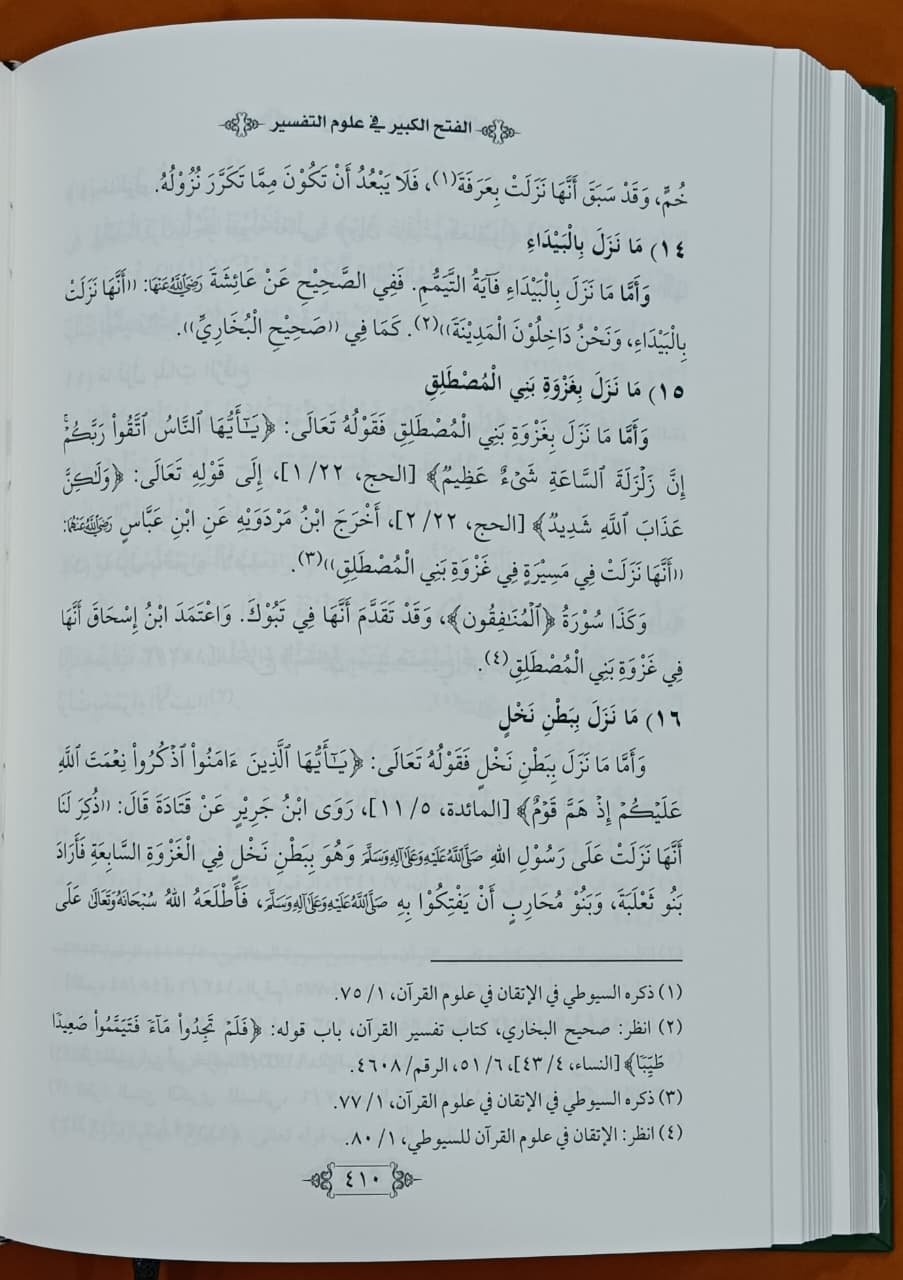 الفتح الكبير في علوم التفسير
خُمٍّ، وَقَدْ سَبَقَ أَنَّهَا نَزَلَتْ بِعَرَفَةَ(١)، فَلَا يَبْعُدُ أَنْ تَكُوْنَ مِمَّا تَكَرَّرَ نُزُوْلُهُ.
١٤) مَا نَزَلَ بِالْبَيْدَاءِ
وَأَمَّا مَا نَزَلَ بِالْبَيْدَاءِ فَآيَةُ التَّيَمُّمِ. فَفِي الصَّحِيْحِ عَنْ عَائِشَةَ رَضِيَ اللَّهُ عَنْهَا: ((أَنَّهَا نَزَلَتْ
بِالْبَيْدَاءِ، وَنَحْنُ دَاخِلُوْنَ الْمَدِيْنَةَ))(٢). كَمَا فِي ((صَحِيْحِ الْبُخَارِيِّ)).
١٥) مَا نَزَلَ بِغَزْوَةِ بَنِي الْمُصْطَلِقِ
وَأَمَّا مَا نَزَلَ بِغَزْوَةِ بَنِي الْمُصْطَلِقِ فَقَوْلُهُ تَعَالَى: ﴿يَـٰٓأَيُّهَا ٱلنَّاسُ ٱتَّقُواْ رَبَّكُمْۚ
إِنَّ زَلْزَلَةَ ٱلسَّاعَةِ شَىْءٌ عَظِيمٌ﴾ [الحج، ٢٢/ ١]، إِلَى قَوْلِهِ تَعَالَى: ﴿وَلَـٰكِنَّ
عَذَابَ ٱللَّهِ شَدِيدٌ﴾ [الحج، ٢٢/ ٢]، أَخْرَجَ ابْنُ مَرْدَوَيْهِ عَنِ ابْنِ عَبَّاسٍ رَضِيَ اللَّهُ عَنْهُمَا:
((أَنَّهَا نَزَلَتْ فِي مَسِيْرَةٍ فِي غَزْوَةِ بَنِي الْمُصْطَلِقِ))(٣).
وَكَذَا سُوْرَةُ ﴿ٱلْمُنَـٰفِقُون﴾، وَقَدْ تَقَدَّمَ أَنَّهَا فِي تَبُوْكَ. وَاعْتَمَدَ ابْنُ إِسْحَاقَ أَنَّهَا
فِي غَزْوَةِ بَنِي الْمُصْطَلِقِ(٤).
١٦) مَا نَزَلَ بِبَطْنِ نَخْلٍ
وَأَمَّا مَا نَزَلَ بِبَطْنِ نَخْلٍ فَقَوْلُهُ تَعَالَى: ﴿يَـٰٓأَيُّهَا ٱلَّذِينَ ءَامَنُواْ ٱذْكُرُواْ نِعْمَتَ ٱللَّهِ
عَلَيْكُمْ إِذْ هَمَّ قَوْمٌ﴾ [المائدة، ٥/ ١١]، رَوَى ابْنُ جَرِيْرٍ عَنْ قَتَادَةَ قَالَ: ((ذُكِرَ لَنَا
أَنَّهَا نَزَلَتْ عَلَى رَسُوْلِ اللهِ صَلَّى اللَّهُ عَلَيْهِ وَعَلَى آلِهِ وَسَلَّمَ وَهُوَ بِبَطْنِ نَخْلٍ فِي الْغَزْوَةِ السَّابِعَةِ فَأَرَادَ
بَنُو ثَعْلَبَةَ، وَبَنُو مُحَارِبٍ أَنْ يَفْتِكُوْا بِهِ صَلَّى اللَّهُ عَلَيْهِ وَعَلَى آلِهِ وَسَلَّمَ، فَأَطْلَعَهُ اللهُ سُبْحَانَهُ وَتَعَالَى عَلَى
(١) ذكره السيوطي في الإتقان في علوم القرآن، ١/ ٧٥.
(٢) انظر: صحيح البخاري، كتاب تفسير القرآن، باب قوله: ﴿فَلَمْ تَجِدُواْ مَآءً فَتَيَمَّمُواْ صَعِيدًا
طَيِّبًا﴾ [النساء، ٤/ ٤٣]، ٦/ ٥١، الرقم/ ٤٦٠٨.
(٣) ذكره السيوطي في الإتقان في علوم القرآن، ١/ ٧٧.
(٤) انظر: الإتقان في علوم القرآن للسيوطي، ١/ ٨٠.
٤١٠